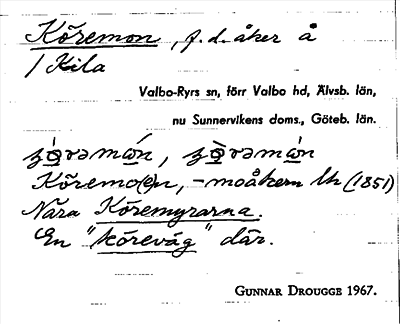 Kõremon, f.d. åker å
/ Kila
Valbo-Ryrs sn, förr Valbo hd, Älvsb. län,
nu Sunnervikens doms., Göteb. län.
Kõremo(e)n, -moåkern lh (1851)
Nära Kõremyrarna.
En "kõreväg" där.
GUNNAR DROUGGE 1967.